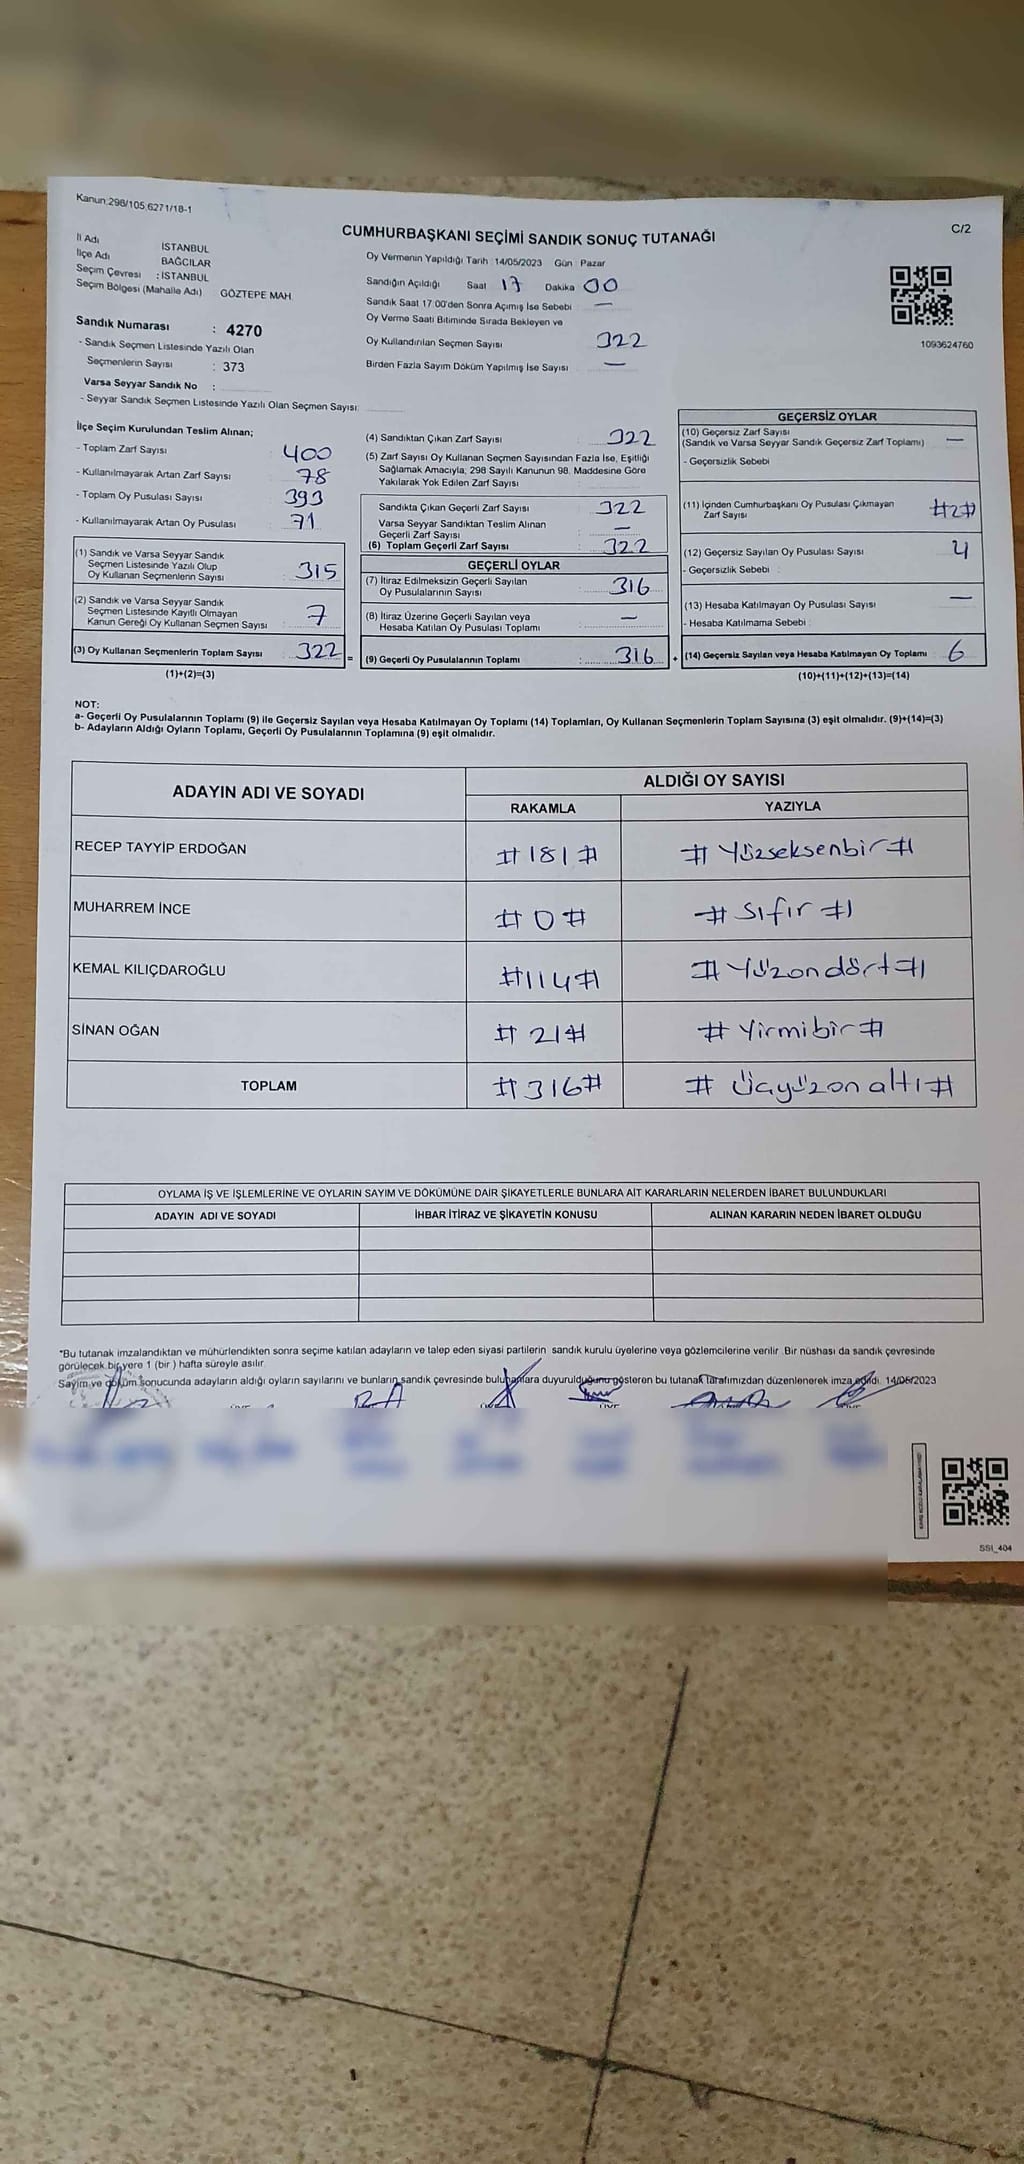 Kanun:298/105,6271/18-1
C/2
CUMHURBAŞKANI SEÇİMİ SANDIK SONUÇ TUTANAĞI
İl Adı İSTANBUL
İlçe Adı BAĞCILAR
Seçim Çevresi : İSTANBUL
Seçim Bölgesi (Mahalle Adı) GÖZTEPE MAH.
Oy Vermenin Yapıldığı Tarih :14/05/2023 Gün : Pazar
Sandığın Açıldığı Saat 17 Dakika 00
Sandık Saat 17:00'den Sonra Açımış İse Sebebi —
Oy Verme Saati Bitiminde Sırada Bekleyen ve
Oy Kullandırılan Seçmen Sayısı 322
Birden Fazla Sayım Döküm Yapılmış İse Sayısı —
1093624760
Sandık Numarası : 4270
- Sandık Seçmen Listesinde Yazılı Olan
Seçmenlerin Sayısı : 373
Varsa Seyyar Sandık No :
- Seyyar Sandık Seçmen Listesinde Yazılı Olan Seçmen Sayısı:
İlçe Seçim Kurulundan Teslim Alınan;
- Toplam Zarf Sayısı 400
- Kullanılmayarak Artan Zarf Sayısı 78
- Toplam Oy Pusulası Sayısı 393
- Kullanılmayarak Artan Oy Pusulası 71
(1) Sandık ve Varsa Seyyar Sandık
Seçmen Listesinde Yazılı Olup
Oy Kullanan Seçmenlerin Sayısı 315
(2) Sandık ve Varsa Seyyar Sandık
Seçmen Listesinde Kayıtlı Olmayan
Kanun Gereği Oy Kullanan Seçmen Sayısı : 7
(3) Oy Kullanan Seçmenlerin Toplam Sayısı : 322 =
(1)+(2)=(3)
(4) Sandıktan Çıkan Zarf Sayısı : 322
(5) Zarf Sayısı Oy Kullanan Seçmen Sayısından Fazla İse, Eşitliği
Sağlamak Amacıyla; 298 Sayılı Kanunun 98. Maddesine Göre
Yakılarak Yok Edilen Zarf Sayısı :
Sandıkta Çıkan Geçerli Zarf Sayısı 322
Varsa Seyyar Sandıktan Teslim Alınan
Geçerli Zarf Sayısı —
(6) Toplam Geçerli Zarf Sayısı : 322
GEÇERLİ OYLAR
(7) İtiraz Edilmeksizin Geçerli Sayılan
Oy Pusulalarının Sayısı : 316
(8) İtiraz Üzerine Geçerli Sayılan veya
Hesaba Katılan Oy Pusulası Toplamı : —
(9) Geçerli Oy Pusulalarının Toplamı : 316 +
GEÇERSİZ OYLAR
(10) Geçersiz Zarf Sayısı
(Sandık ve Varsa Seyyar Sandık Geçersiz Zarf Toplamı) —
- Geçersizlik Sebebi
(11) İçinden Cumhurbaşkanı Oy Pusulası Çıkmayan
Zarf Sayısı #2#
(12) Geçersiz Sayılan Oy Pusulası Sayısı 4
- Geçersizlik Sebebi :
(13) Hesaba Katılmayan Oy Pusulası Sayısı —
- Hesaba Katılmama Sebebi :
(14) Geçersiz Sayılan veya Hesaba Katılmayan Oy Toplamı 6
(10)+(11)+(12)+(13)=(14)
NOT:
a- Geçerli Oy Pusulalarının Toplamı (9) ile Geçersiz Sayılan veya Hesaba Katılmayan Oy Toplamı (14) Toplamları, Oy Kullanan Seçmenlerin Toplam Sayısına (3) eşit olmalıdır. (9)+(14)=(3)
b- Adayların Aldığı Oyların Toplamı, Geçerli Oy Pusulalarının Toplamına (9) eşit olmalıdır.
ADAYIN ADI VE SOYADI ALDIĞI OY SAYISI
RAKAMLA YAZIYLA
RECEP TAYYİP ERDOĞAN #181# #Yüzseksenbir#
MUHARREM İNCE #0# #Sıfır#
KEMAL KILIÇDAROĞLU #114# #Yüzondört#
SİNAN OĞAN #21# #Yirmibir#
TOPLAM #316# #Üçyüzonaltı#
OYLAMA İŞ VE İŞLEMLERİNE VE OYLARIN SAYIM VE DÖKÜMÜNE DAİR ŞİKAYETLERLE BUNLARA AİT KARARLARIN NELERDEN İBARET BULUNDUKLARI
ADAYIN ADI VE SOYADI İHBAR İTİRAZ VE ŞİKAYETİN KONUSU ALINAN KARARIN NEDEN İBARET OLDUĞU
*Bu tutanak imzalandıktan ve mühürlendikten sonra seçime katılan adayların ve talep eden siyasi partilerin sandık kurulu üyelerine veya gözlemcilerine verilir. Bir nüshası da sandık çevresinde
görülecek bir yere 1 (bir ) hafta süreyle asılır.
Sayım ve döküm sonucunda adayların aldığı oyların sayılarını ve bunların sandık çevresinde bulunanlara duyurulduğunu gösteren bu tutanak tarafımızdan düzenlenerek imza edildi. 14/05/2023
SSI_404